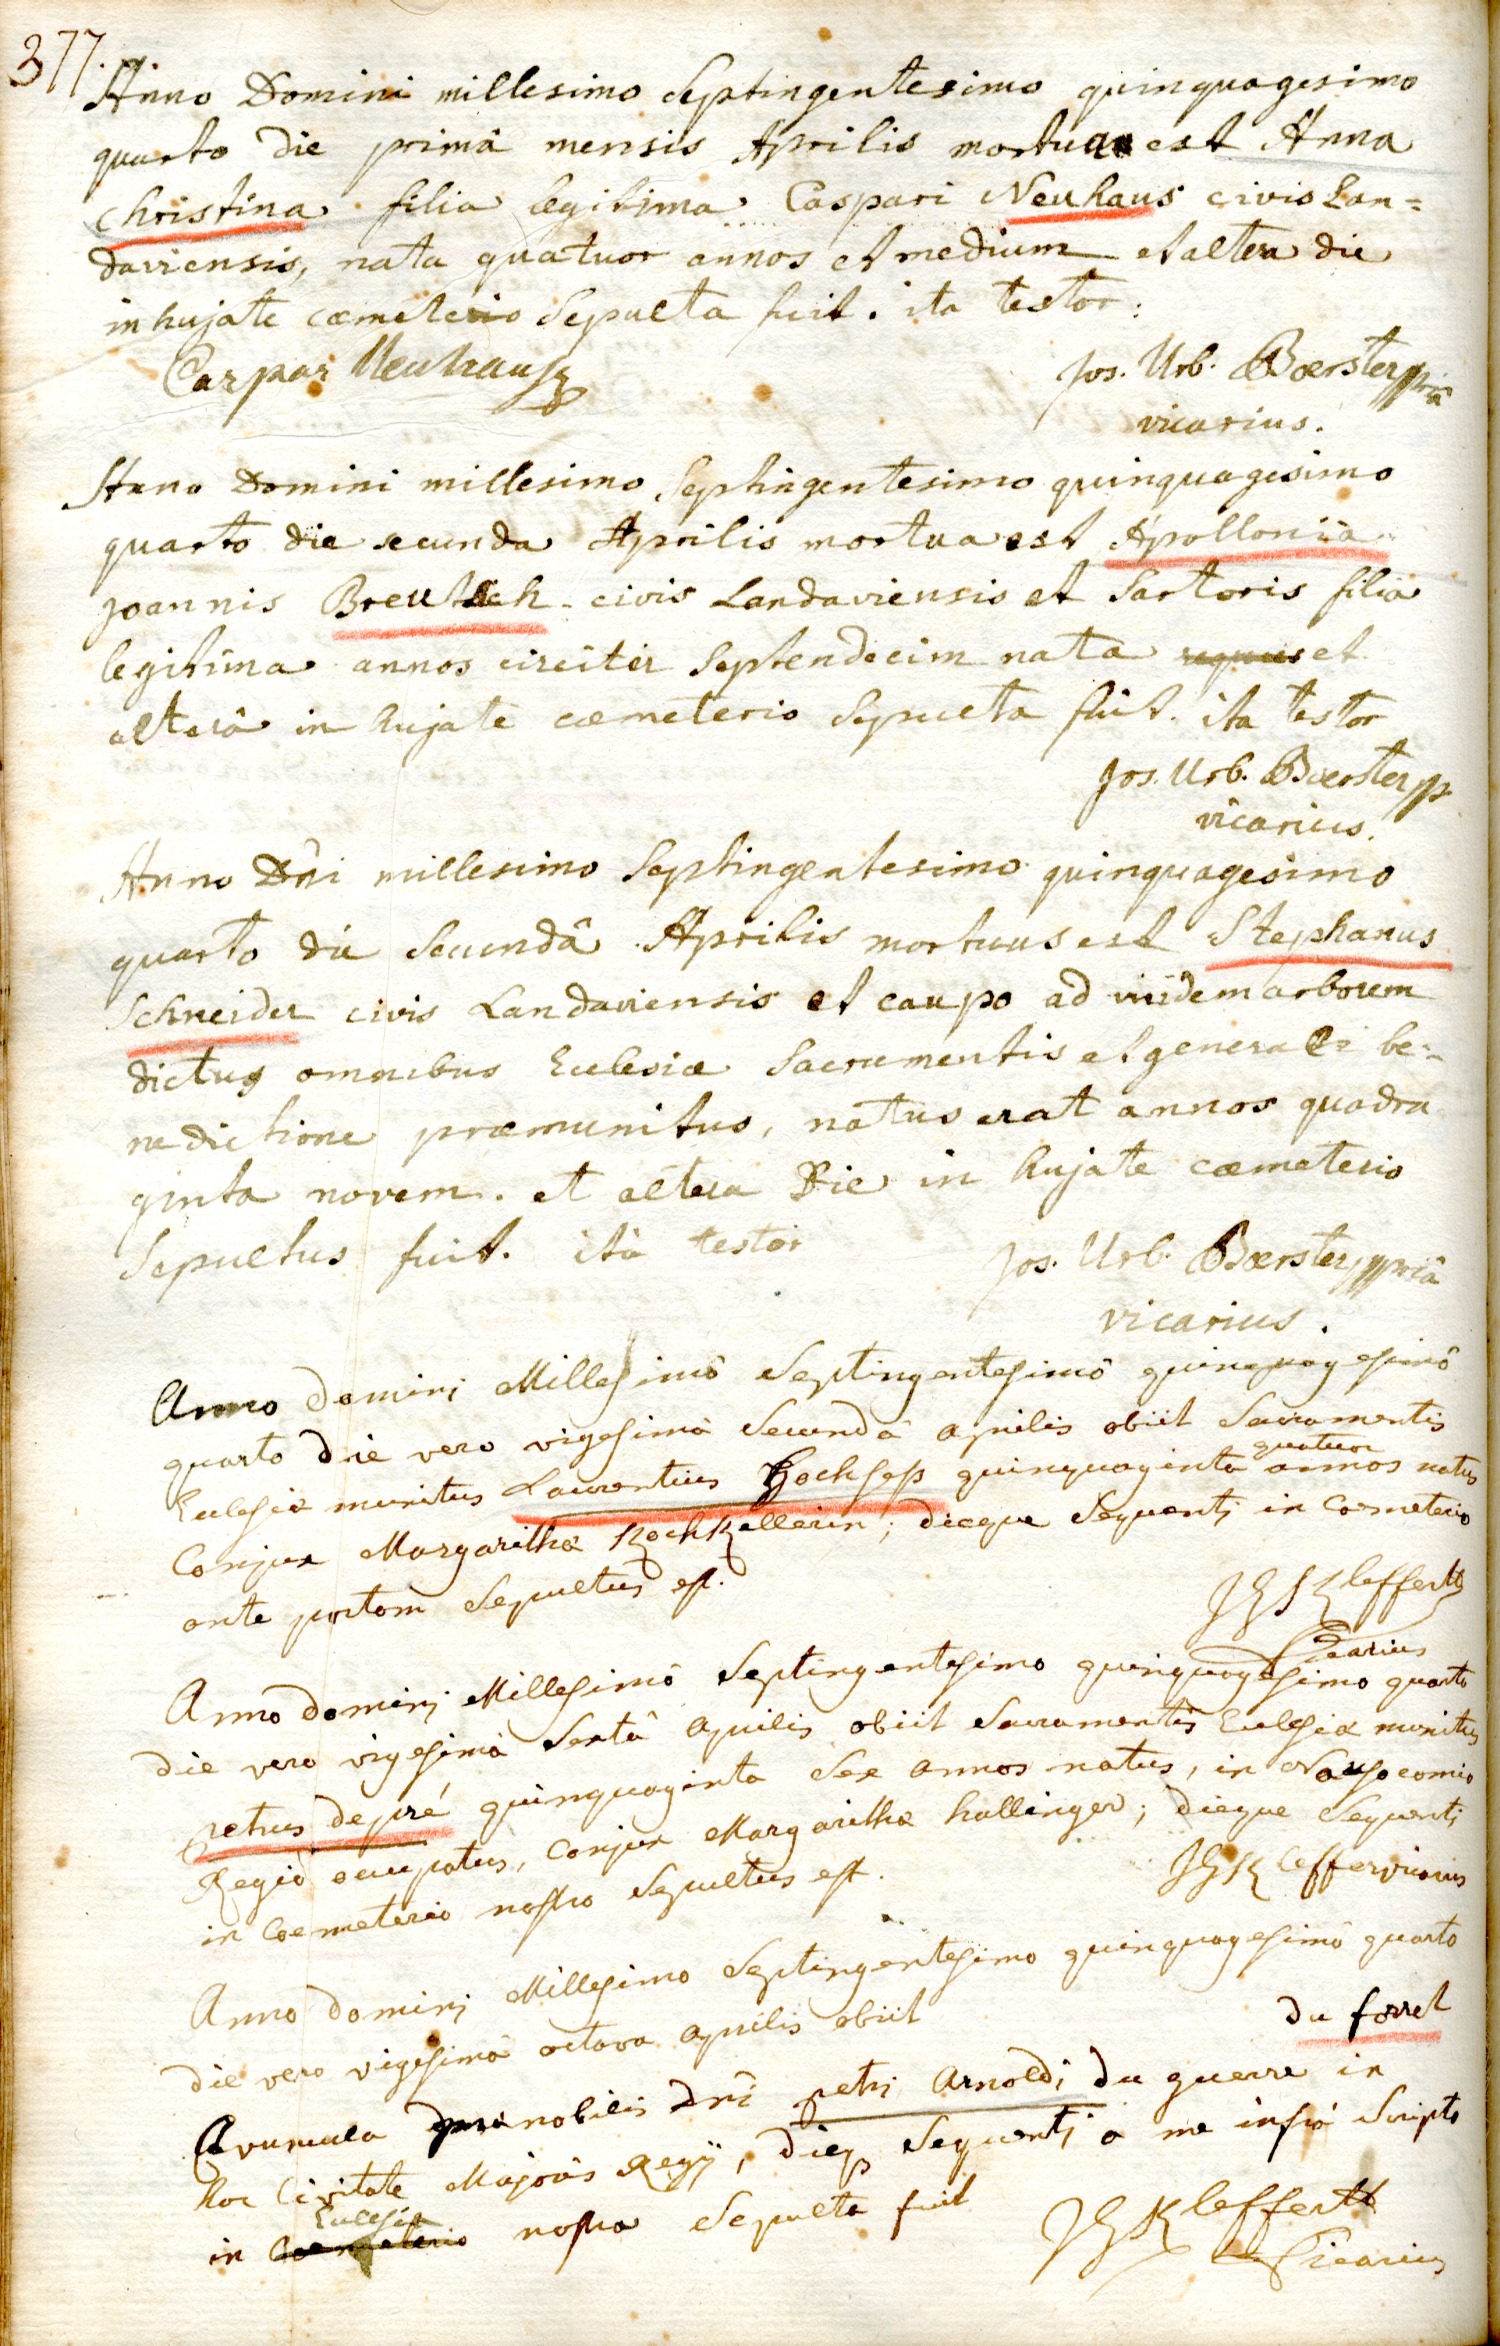 377.
Anno Domini millesimo Septingentesimo quinquagesimo
quarto die primâ mensis Aprilis mortua est Anna
Christina filia legitima Caspari Neuhaus civis Lan=
daviensis, nata quatuor annos et medium et altera die
in hujate cœmeterio Sepulta fuit. ita testor:
Caspar Neuhaus
Jos. Urb. Bœrster
vicarius.
Anno Domini millesimo Septingentesimo quinquagesimo
quarto die secunda Aprilis mortua est Apollonia
Joannis civis Landaviensis et Sartoris filia
legitima annos circiter Septendecim nata et
alterâ in hujate cœmeterio Sepulta fuit. ita testor
Jos. Urb. Bœrster
vicarius.
Anno Dñi millesimo Septingentesimo quinquagesimo
quarto die Secundâ Aprilis mortuus est Stephanus
Schneider civis Landaviensis et caupo ad viridem arborem
dictus omnibus Ecclesiæ Sacramentis et generali be=
nedictione præmunitus, natus erat annos quadra
ginta novem. et altera Die in hujate cœmeterio
Sepultus fuit. ita testor
Jos. Urb. Bœrster
vicarius.
Anno Domini Millesimô Septingentesimô quinquagesimô
quarto die vero vigesimâ Secundâ aprilis obiit Sacramentis
Ecclesiæ munitus Laurentius quinquaginta quatuor annos natus
Conjux Margarithæ ; dieque Sequenti in Coemeterio
ante portam Sepultus est.
Kleffert
Vicarius
Anno Domini Millesimô Septingentesimo quinquagesimo quarto
die vero vigesimâ Sextâ aprilis obiit Sacramentis Ecclesiæ munitus
petrus depré quinquaginta Sex annos natus, in Nosocomio
Regio occupatus, Conjux Margarithæ hallinger; dieque Sequenti
in Coemeterio nostro Sepultus est.
vicarius
Anno Domini Millesimo Septingentesimo quinquagesimô quarto
die vero vigesimâ octava aprilis obiit
du forret
Avuncula prænobilis Dñi petri Arnoldi du guerre in
hac Civitate Majoris Regij, dieq Sequenti a me infrà Scripto
in Ecclesia nostra Sepulta fuit
Kleffert
Vicarius